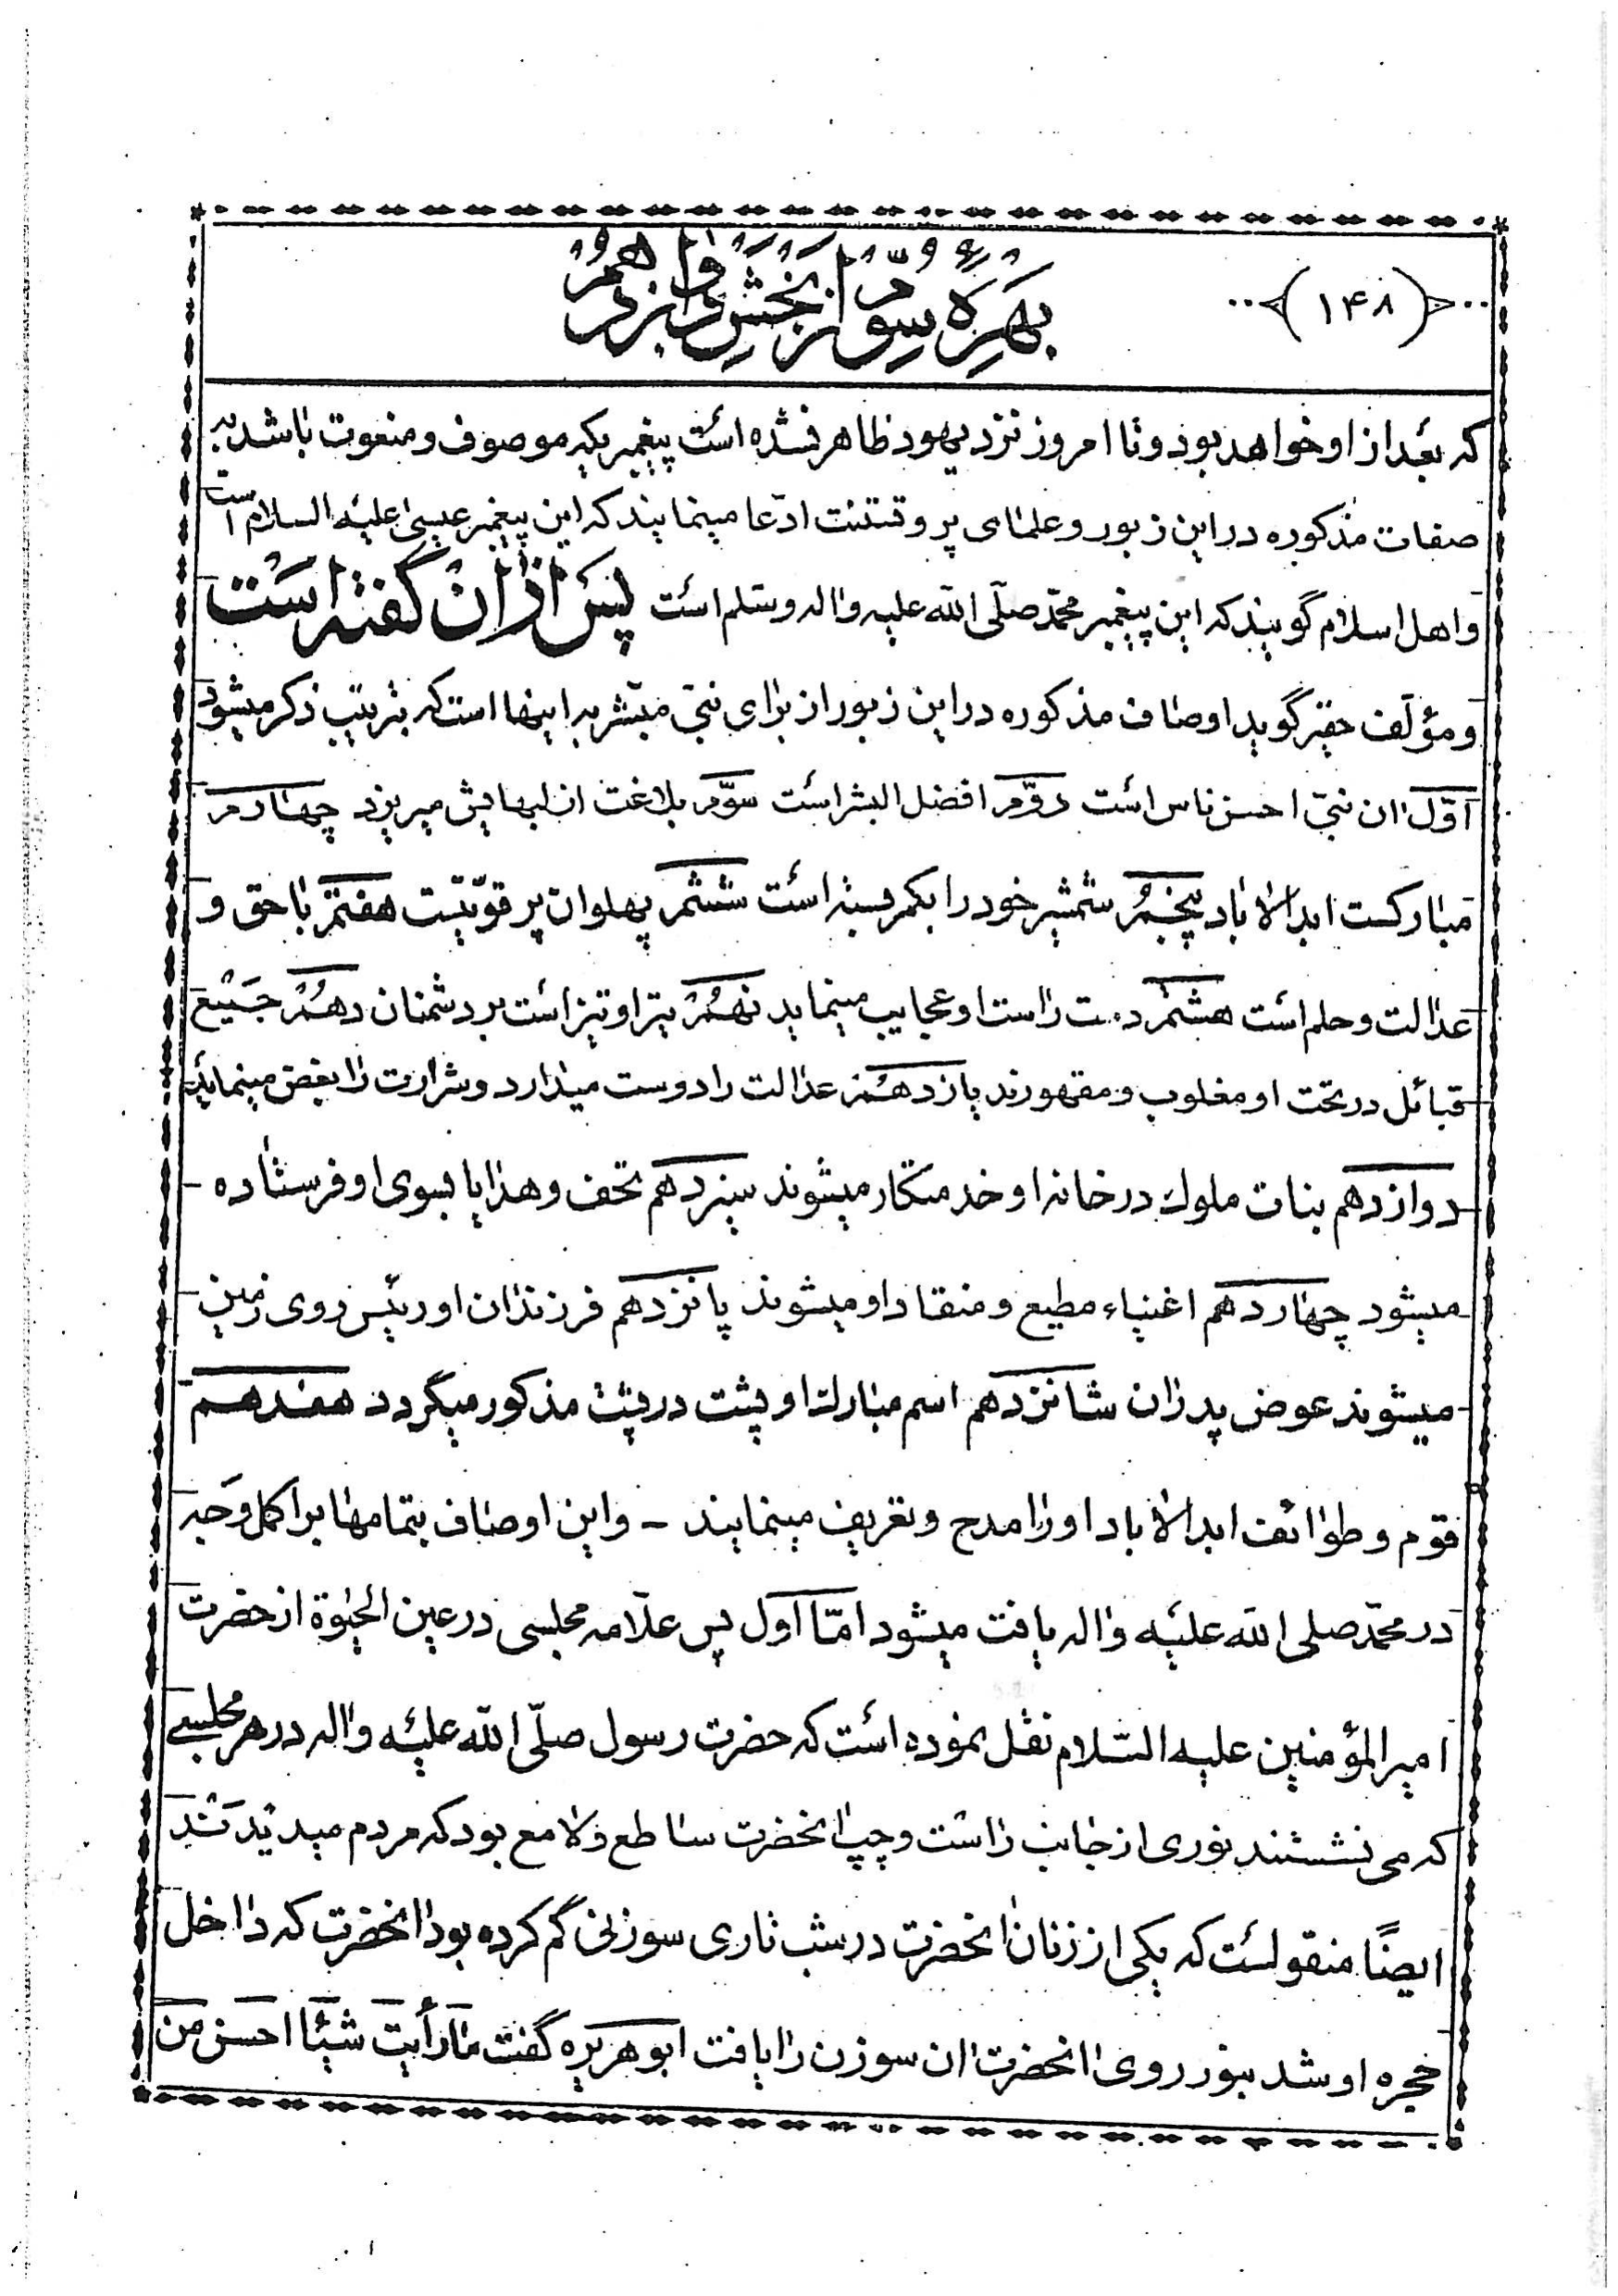 (۱۴۸)
بهره سوم از بخش دوازدهم
که بعد از او خواهد بود و تا امروز نزد یهود ظاهر نشده است پیغمبریکه موصوف و منعوت باشد به
صفات مذکوره در این زبور و علمای پروتستنت ادّعا مینمایند که این پیغمبر عیسی علیه السلام است
و اهل اسلام گویند که این پیغمبر محمّد صلّی الله علیه و اله و سلم است پس از ان گفته است
و مؤلّف حقیر گوید اوصاف مذکوره در این زبور از برای نبیّ مبشّر به اینها است که بترتیب ذکر میشود
اوّل ان نبیّ احسن ناس است دوّم افضل البشر است سوّم بلاغت از لبهایش میریزد چهارم
مبارکست ابدالاباد پنجم شمشیر خود را بکمر بسته است ششم پهلوان پر قوّیتست هفتم با حق و
عدالت و حلم است هشتم دست راست او عجایب مینماید نهم تیر او تیز است بر دشمنان دهم جمیع
قبائل در تحت او مغلوب و مقهورند یازدهم عدالت را دوست میدارد و شرارت را بغض مینماید
دوازدهم بنات ملوک در خانه او خدمتکار میشوند سیزدهم تحف و هدایا بسوی او فرستاده
میشود چهاردهم اغنیاء مطیع و منقاد او میشوند پانزدهم فرزندان او رئیس روی زمین
میشوند عوض پدران شانزدهم اسم مبارک او پشت در پشت مذکور میگردد هفدهم
قوم و طوائف ابدالاباد او را مدح و تعریف مینمایند - و این اوصاف بتمامها بر اکمل وجه
در محمّد صلی الله علیه و اله یافت میشود امّا اول پس علّامه مجلسی در عین الحیوة از حضرت
امیرالمؤمنین علیه السّلام نقل نموده است که حضرت رسول صلّی الله علیه و اله در هر مجلسی
که می نشستند نوری از جانب راست و چپ انحضرت ساطع و لامع بود که مردم میدیدند
ایضًا منقولست که یکی از زنان انحضرت در شب تاری سوزنی گم کرده بود انحضرت که داخل
حجره او شد بنور روی انحضرت ان سوزن را یافت ابو هریره گفت ما رأیت شیئا احسن من